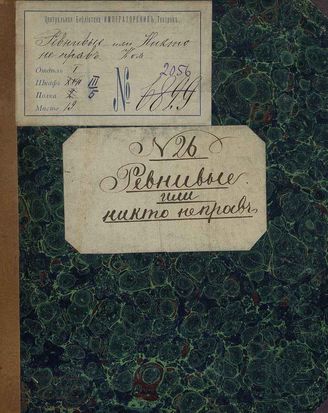 Центральная Библіотека ИМПЕРАТОРСКИХЪ Театровъ.
Ревнивые или Никто
не правъ Ком
Отдѣлъ I
Шкафъ XVII III
Полка 2 5
Мѣсто 19
2056
№ 6899
N 26
Ревнивые
или
никто неправъ